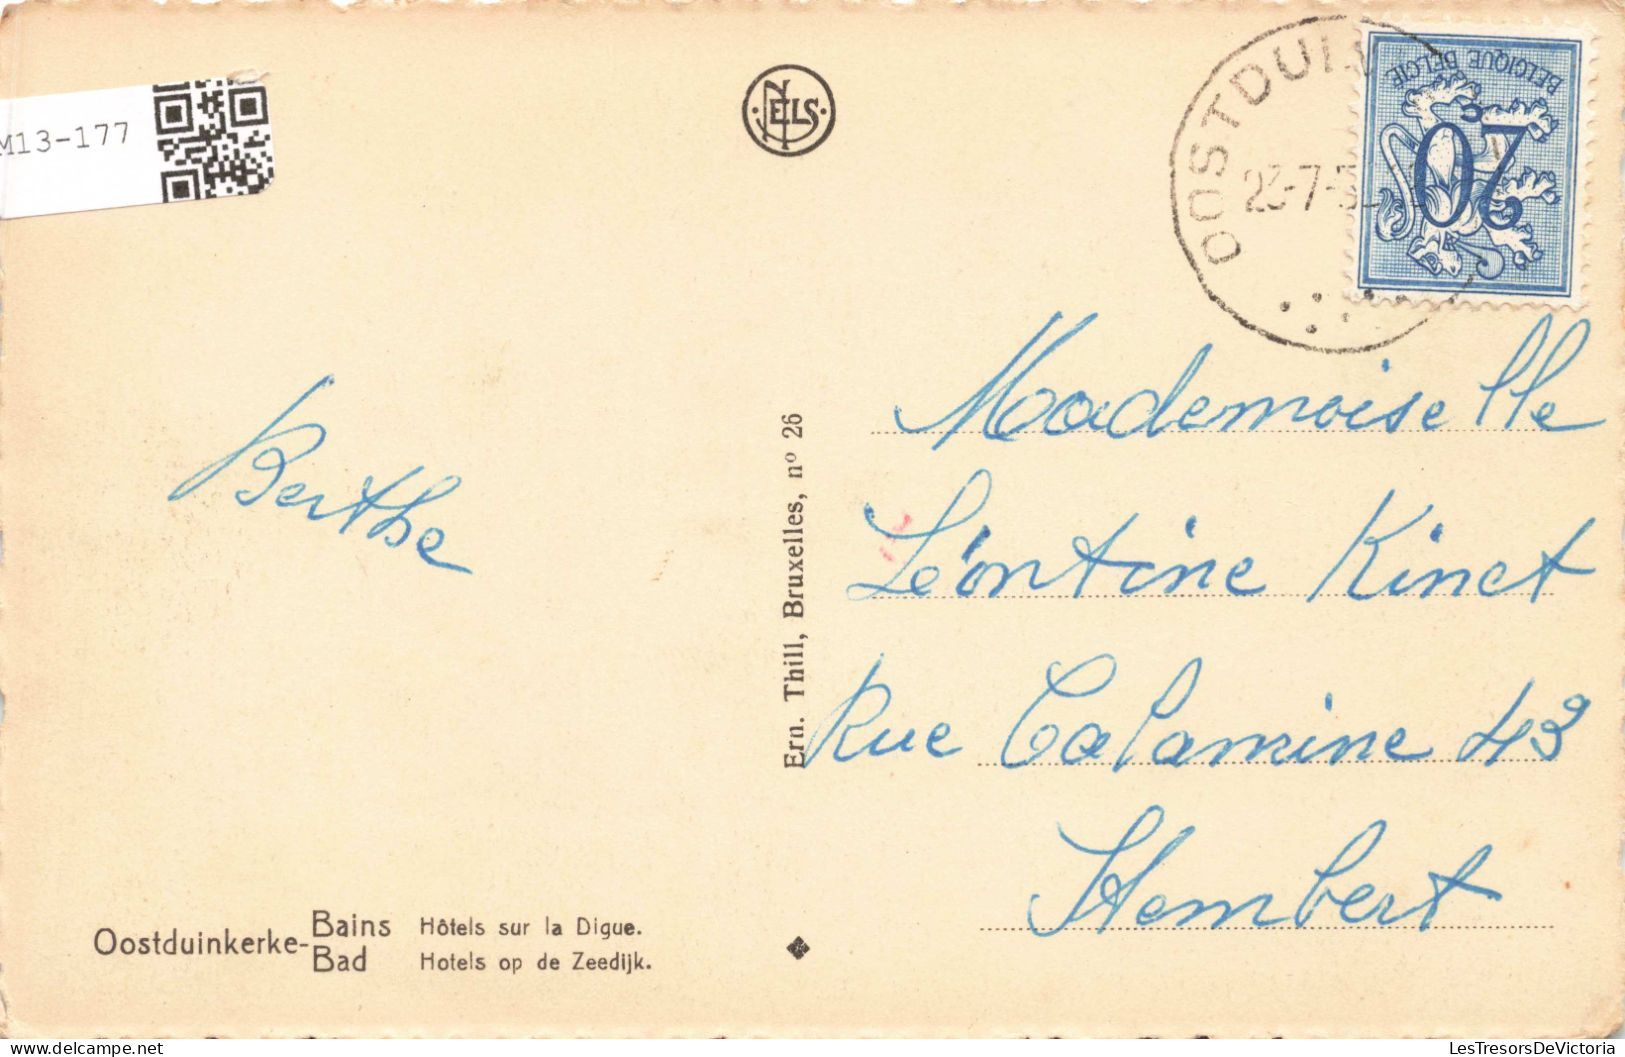 M13-177
NELS
OOSTDUIN
23-7-5
BELGIQUE BELGIE
20
Mademoiselle
Berthe
Léontine Kinet
Rue Calamine 43
Hembert
Ern. Thill, Bruxelles, nº 26
Oostduinkerke-Bains Hôtels sur la Digue.
Oostduinkerke-Bad Hotels op de Zeedijk.
LesTresorsDeVictoria